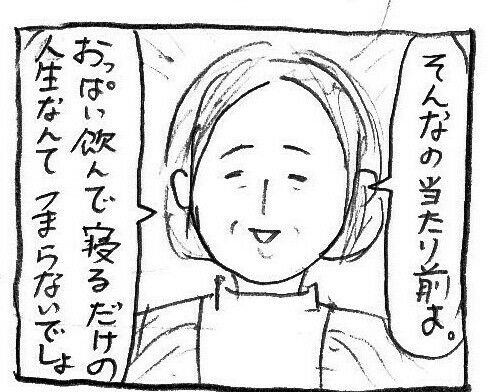 そんなの当たり前よ。
おっぱい飲んで寝るだけの
人生なんてつまらないでしょ